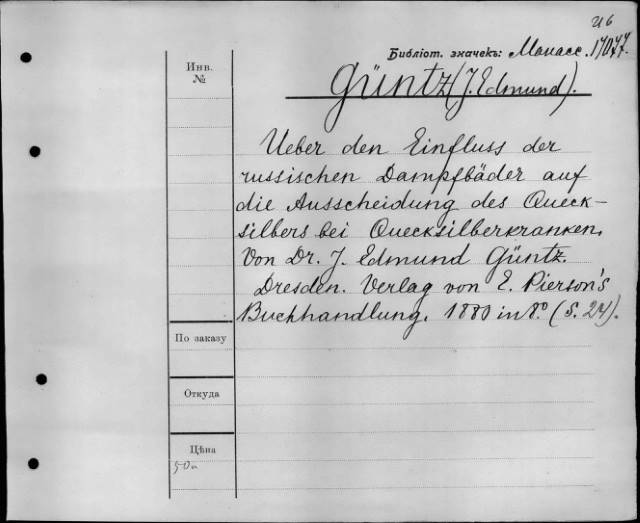 И6
Библіот. значекъ: Манасс. 17077.
Инв.
№
Güntz (J. Edmund).
Ueber den Einfluss der
russischen Dampfbäder auf
die Ausscheidung des Queck-
silbers bei Quecksilberkranken.
Von Dr. J. Edmund Güntz.
Dresden. Verlag von E. Pierson's
Buchhandlung. 1880 in 8º. (S. 24).
По заказу
Откуда
Цѣна
50